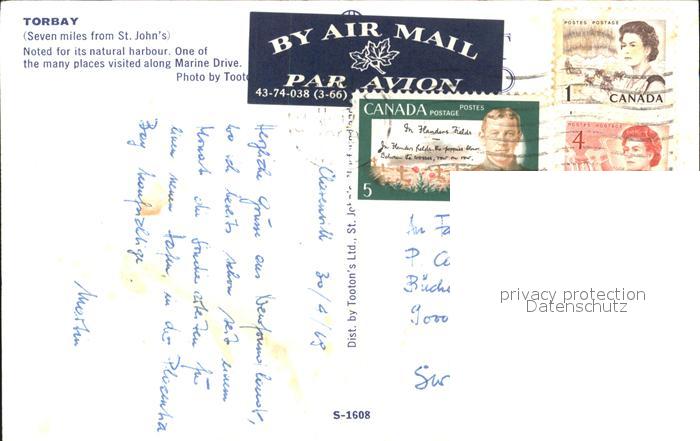 TORBAY
(Seven miles from St. John's)
Noted for its natural harbour. One of
the many places visited along Marine Drive.
Photo by Tooto
BY AIR MAIL
PAR AVION
43-74-038 (3-66)
POSTES POSTAGE
1
CANADA
CANADA POSTAGE POSTES
In Flanders Fields
In Flanders fields the poppies blow
Between the crosses, row on row,
5
POSTES POSTAGE
4
Clarenville 30/4/69
Herzliche Grüsse aus Neufundland,
wo ich bereits schon seit einem
Monat die Sondierarbeiten für
einen neuen Hafen in der Placentia
Bay
Martin
Dist. by Tooton's Ltd., St. Jo
An Fa
Büche
9000
Sw
privacy protection
Datenschutz
S-1608